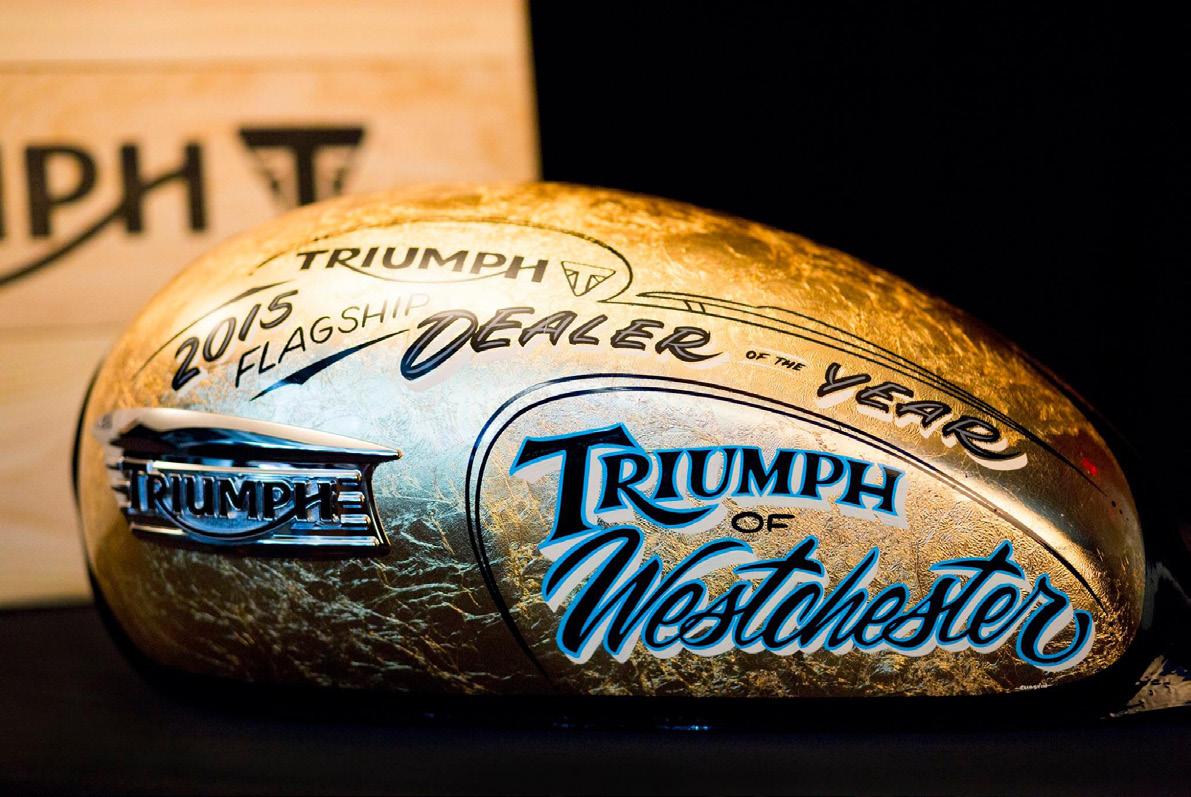 MPH T
TRIUMPH
2015
FLAGSHIP
DEALER OF THE YEAR
TRIUMPH
TRIUMPH
OF
Westchester